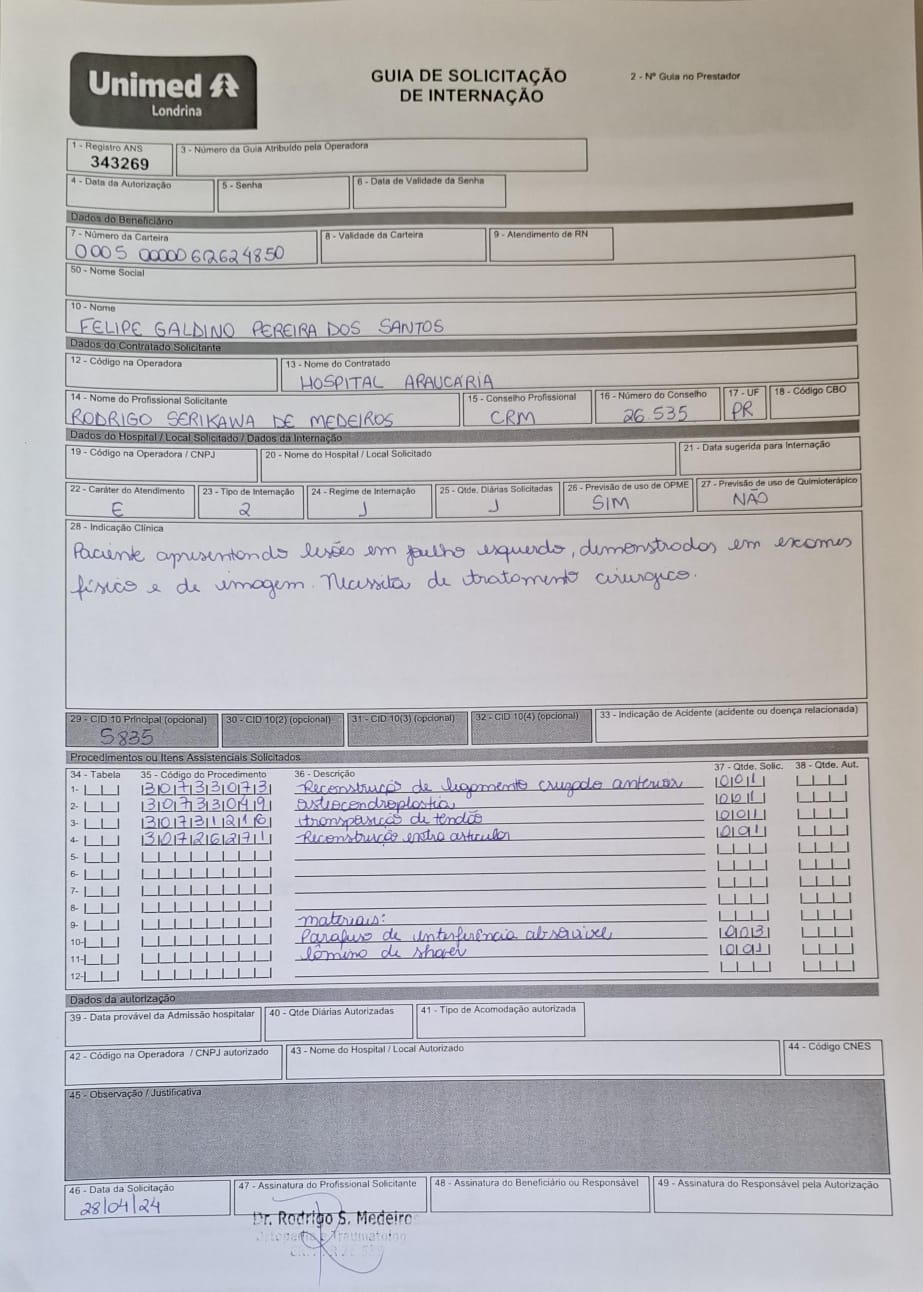 Unimed
Londrina
GUIA DE SOLICITAÇÃO
DE INTERNAÇÃO
2 - Nº Guia no Prestador
1 - Registro ANS
343269
3 - Número da Guia Atribuído pela Operadora
4 - Data da Autorização
5 - Senha
6 - Data de Validade da Senha
Dados do Beneficiário
7 - Número da Carteira
0005 00000612624850
8 - Validade da Carteira
9 - Atendimento de RN
50 - Nome Social
10 - Nome
FELIPE GALDINO PEREIRA DOS SANTOS
Dados do Contratado Solicitante
12 - Código na Operadora
13 - Nome do Contratado
HOSPITAL ARAUCARIA
14 - Nome do Profissional Solicitante
RODRIGO SERIKAWA DE MEDEIROS
15 - Conselho Profissional
CRM
16 - Número do Conselho
26.535
17 - UF
PR
18 - Código CBO
Dados do Hospital / Local Solicitado / Dados da Internação
19 - Código na Operadora / CNPJ
20 - Nome do Hospital / Local Solicitado
21 - Data sugerida para Internação
22 - Caráter do Atendimento
E
23 - Tipo de Internação
2
24 - Regime de Internação
1
25 - Qtde. Diárias Solicitadas
1
26 - Previsão de uso de OPME
SIM
27 - Previsão de uso de Quimioterápico
NÃO
28 - Indicação Clínica
Paciente apresentando lesões em joelho esquerdo, demonstrados em exames
físico e de imagem. Necessita de tratamento cirurgico.
29 - CID 10 Principal (opcional)
S835
30 - CID 10(2) (opcional)
31 - CID 10(3) (opcional)
32 - CID 10(4) (opcional)
33 - Indicação de Acidente (acidente ou doença relacionada)
Procedimentos ou Itens Assistenciais Solicitados
34 - Tabela 35 - Código do Procedimento 36 - Descrição 37 - Qtde. Solic. 38 - Qtde. Aut.
1- 30733073 Reconstrução de ligamento cruzado anterior 001
2- 30733049 osteocondroplastia 001
3- 30731216 transposição de tendão 001
4- 30726271 Reconstrução extra articular 001
5-
6-
7-
8-
9- materiais:
10- Parafuso de interferência absorvivel 003
11- lâmina de shaver 001
12-
Dados da autorização
39 - Data provável da Admissão hospitalar
40 - Qtde Diárias Autorizadas
41 - Tipo de Acomodação autorizada
42 - Código na Operadora / CNPJ autorizado
43 - Nome do Hospital / Local Autorizado
44 - Código CNES
45 - Observação / Justificativa
46 - Data da Solicitação
28/04/24
47 - Assinatura do Profissional Solicitante
48 - Assinatura do Beneficiário ou Responsável
49 - Assinatura do Responsável pela Autorização
Dr. Rodrigo S. Medeiro
Ortopedia e Traumatolog